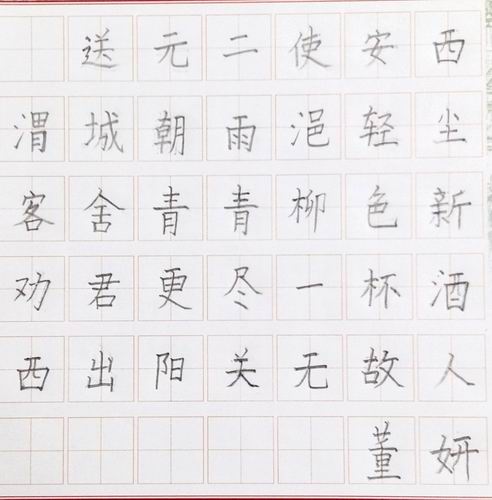 送元二使安西
渭城朝雨浥轻尘
客舍青青柳色新
劝君更尽一杯酒
西出阳关无故人
董妍